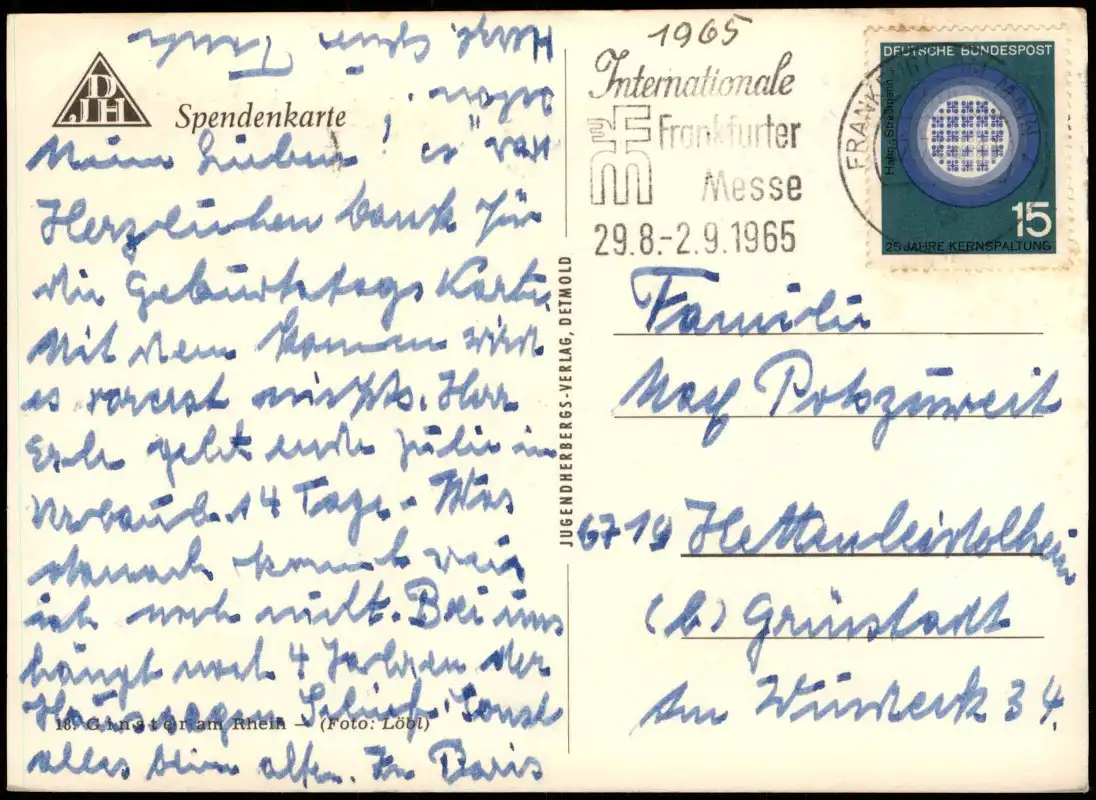 DJH
Spendenkarte
Meine Lieben!
Herzlichen Dank für
die Geburtstags Karte.
Mit dem Kommen wird
es vorerst nichts. Herr
Erle geht ende Juli in
Urlaub. 14 Tage. Was
danach kommt weis
ich noch nicht. Bei uns
hängt nach 4 Jahren der
Haussegen Schief. Sonst
alles beim alten. In Paris
es war
schön!
Herzl. Eure Trude
18. Ginster am Rhein – (Foto: Löbl)
JUGENDHERBERGS-VERLAG, DETMOLD
1965
Internationale
Frankfurter
Messe
29.8.-2.9.1965
FRANKFURT AM MAIN
DEUTSCHE BUNDESPOST
Hahn · Straßmann
15
25 JAHRE KERNSPALTUNG
Familie
Max Potszuweit
6719 Hettenleidelheim
(b) Grünstadt
Am Wüsteck 34.